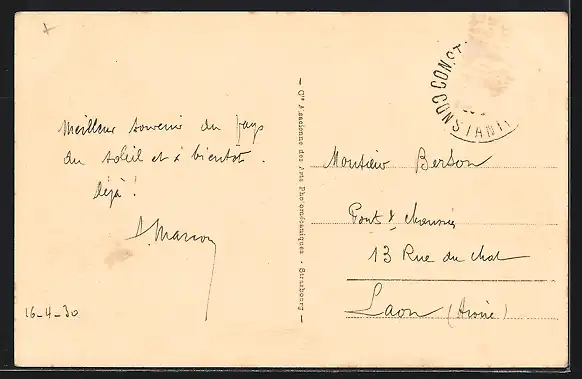 Meilleur souvenir du pays
du soleil et à bientôt.
déjà!
S. Marion
16-4-30
— Cie Alsacienne des Arts Photomécaniques - Strasbourg —
CONSTANTI
CONST
Monsieur Berson
Ponts &
13 Rue du Chat
Laon (Aisne)